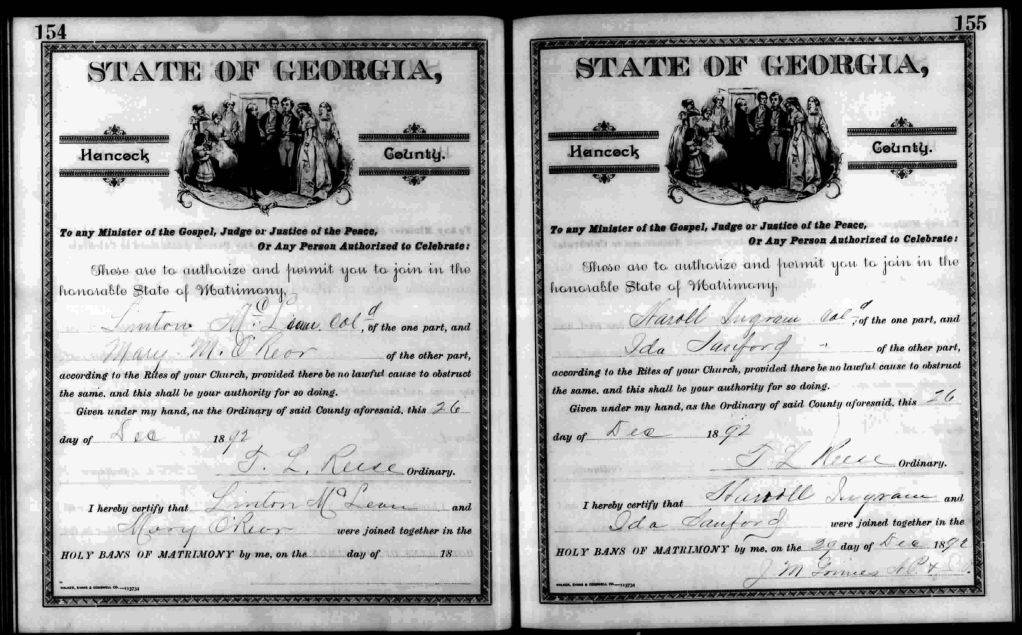 154
STATE OF GEORGIA,
Hancock County.
To any Minister of the Gospel, Judge or Justice of the Peace,
Or Any Person Authorized to Celebrate:
These are to authorize and permit you to join in the
honorable State of Matrimony,
Linton McLean Cold, of the one part, and
Mary M. O'Reor of the other part,
according to the Rites of your Church, provided there be no lawful cause to obstruct
the same, and this shall be your authority for so doing.
Given under my hand, as the Ordinary of said County aforesaid, this 26
day of Dec 1892
T. L. Reese Ordinary.
I hereby certify that Linton McLean and
Mary O'Reor were joined together in the
HOLY BANS OF MATRIMONY by me, on the day of 18
155
STATE OF GEORGIA,
Hancock County.
To any Minister of the Gospel, Judge or Justice of the Peace,
Or Any Person Authorized to Celebrate:
These are to authorize and permit you to join in the
honorable State of Matrimony,
Ingram Cold, of the one part, and
Ida Sanford " of the other part,
according to the Rites of your Church, provided there be no lawful cause to obstruct
the same, and this shall be your authority for so doing.
Given under my hand, as the Ordinary of said County aforesaid, this 26
day of Dec 1892
T L Reese Ordinary.
I hereby certify that Ingram and
Ida Sanford were joined together in the
HOLY BANS OF MATRIMONY by me, on the 29 day of Dec 1892
J M